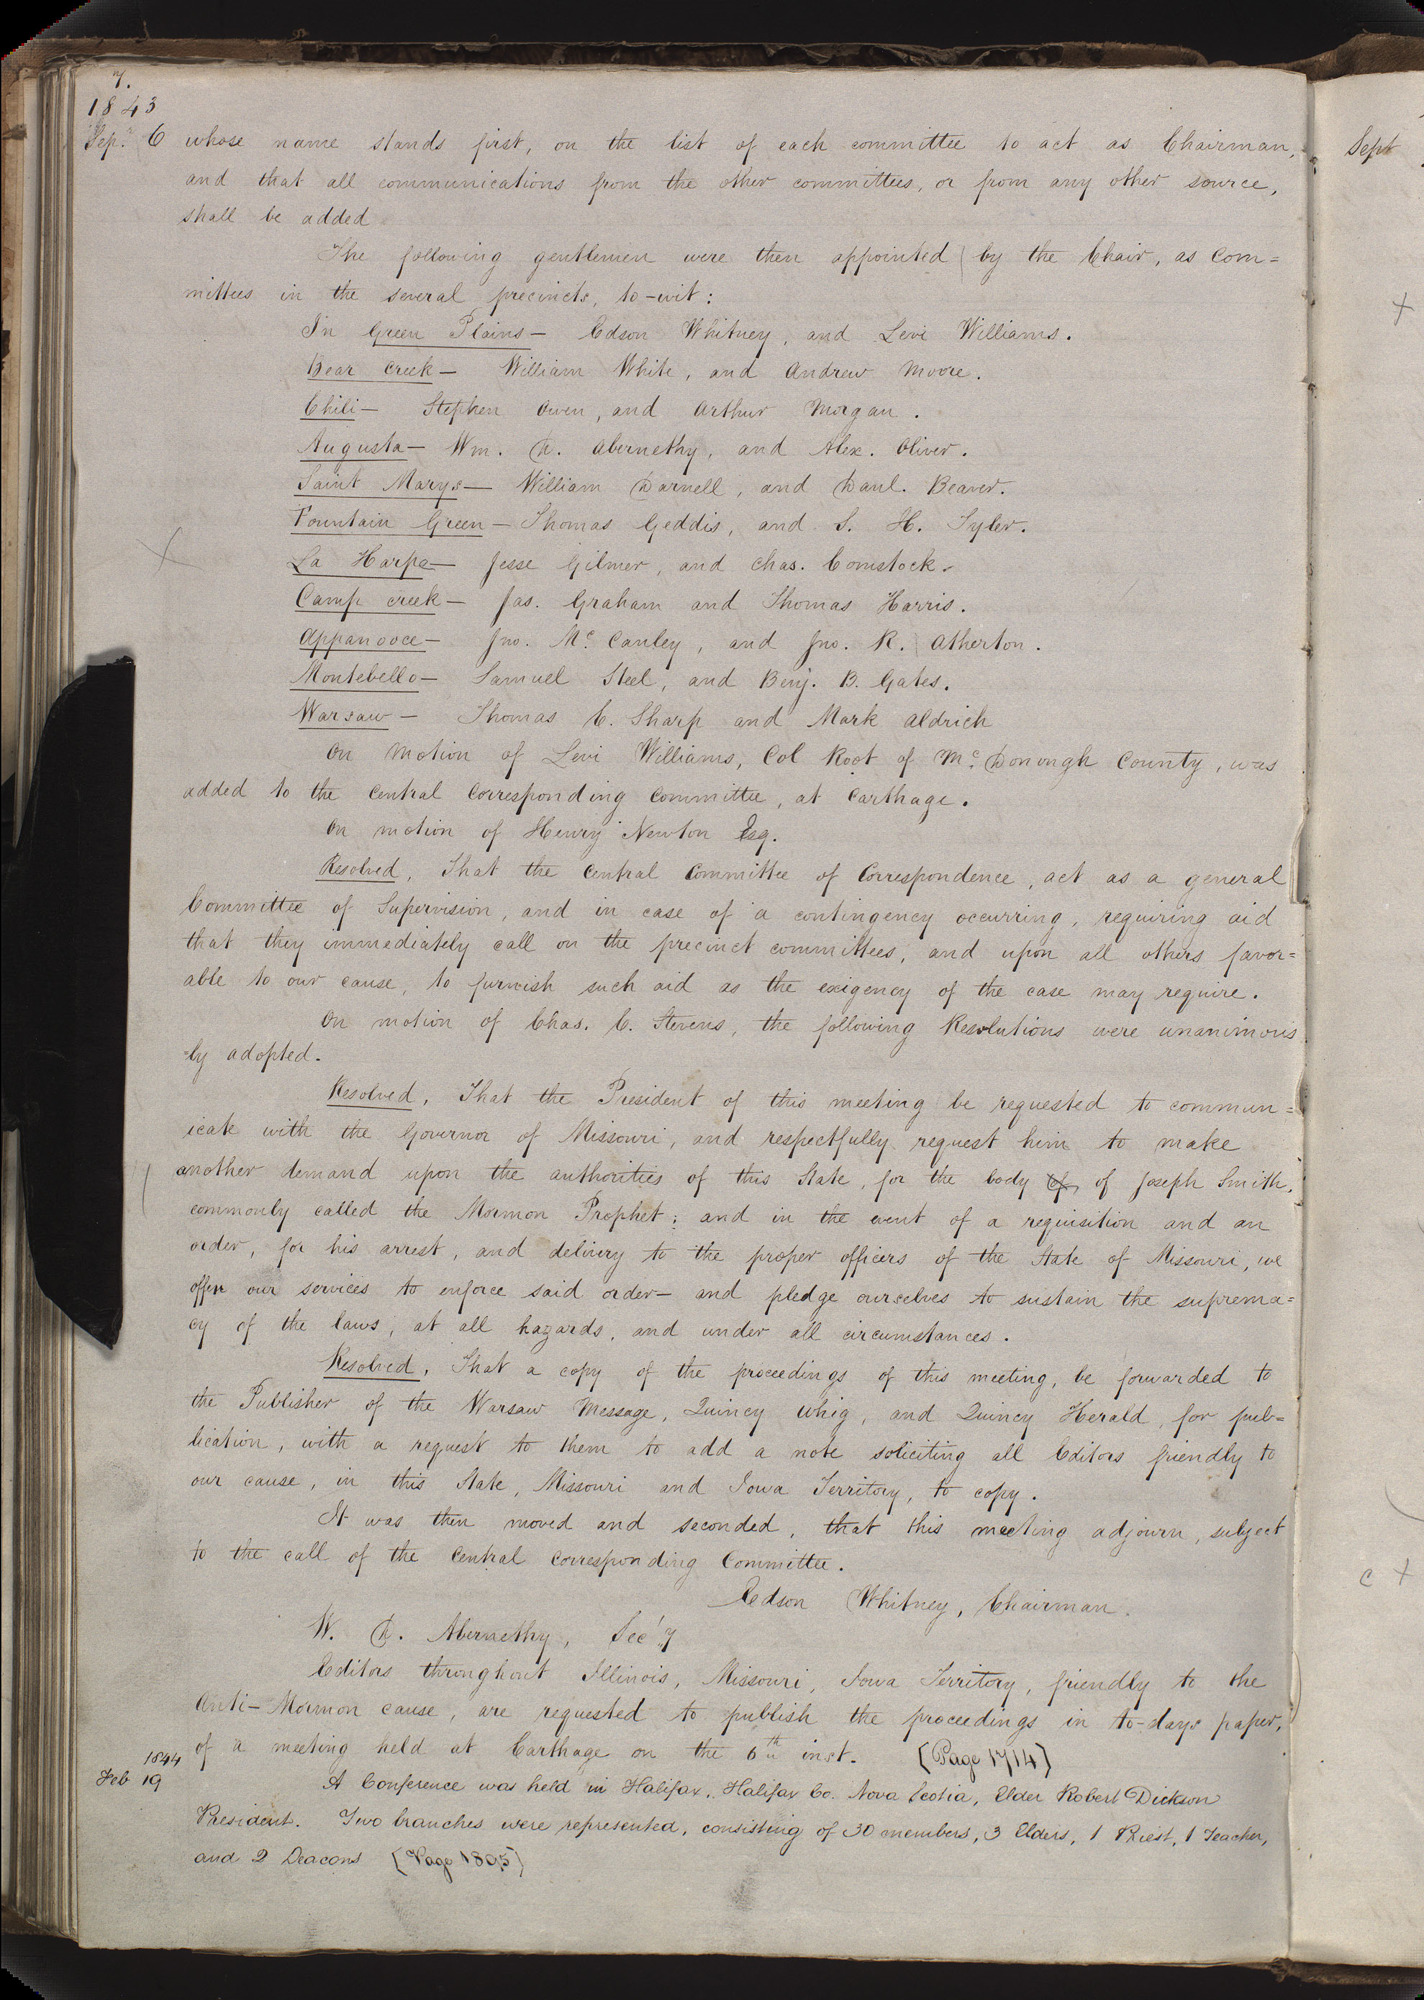 7.
1843
Sep.r 6 whose name stands first, on the list of each committee to act as Chairman,
and that all communications from the other committees, or from any other source,
shall be added
The following gentlemen were then appointed by the Chair, as Com=
mittees in the several precincts, to-wit:
In Green Plains— Edson Whitney, and Levi Williams.
Bear Creek— William White, and Andrew Moore.
Chili— Stephen Owen, and Arthur Morgan.
Augusta— Wm. D. Abernethy, and Alex. Oliver.
Saint Marys— William Darnell, and Danl. Beaver.
Fountain Green— Thomas Geddis, and S. H. Tyler.
La Harpe— Jesse Gilmer, and Chas. Comstock.
Camp Creek— Jas. Graham and Thomas Harris.
Appanooce— Jno. Mc. Canley, and Jno. R. Atherton.
Montebello— Samuel Steel, and Benj. B. Gates.
Warsaw— Thomas C. Sharp and Mark Aldrich
On motion of Levi Williams, Col Root of Mc. Donough County, was
added to the Central Corresponding Committee, at Carthage.
On motion of Henry Newton Esq.
Resolved, That the Central Committee of Correspondence, act as a general
Committee of Supervision, and in case of a contingency occurring, requiring aid
that they immediately call on the precinct committees, and upon all others favor=
able to our cause, to furnish such aid as the exigency of the case may require.
On motion of Chas. C. Stevens, the following Resolutions were unanimous
-ly adopted.
Resolved, That the President of this meeting be requested to commun=
icate with the Governor of Missouri, and respectfully request him to make
another demand upon the authorities of this State, for the body of of Joseph Smith,
commonly called the Mormon Prophet; and in the event of a requisition and an
order, for his arrest, and delivery to the proper officers of the State of Missouri, we
offer our services to enforce said order— and pledge ourselves to sustain the suprema=
cy of the laws, at all hazards, and under all circumstances.
Resolved, That a copy of the proceedings of this meeting, be forwarded to
the Publisher of the Warsaw Message, Quincy Whig, and Quincy Herald, for pub=
lication, with a request to them to add a note soliciting all Editors friendly to
our cause, in this State, Missouri and Iowa Territory, to copy.
It was then moved and seconded, that this meeting adjourn, subject
to the call of the Central Corresponding Committee.
Edson Whitney, Chairman.
W. D. Abernethy, Sec'y
Editors throughout Illinois, Missouri, Iowa Territory, friendly to the
Anti-Mormon cause, are requested to publish the proceedings in to-days paper,
of a meeting held at Carthage on the 6th inst. [Page 1714]
1844
Feb 19 A Conference was held in Halifax, Halifax Co. Nova Scotia, Elder Robert Dickson
President. Two branches were represented, consisting of 30 members, 3 Elders, 1 Priest, 1 Teacher,
and 2 Deacons [Page 1895]
Sept
c +